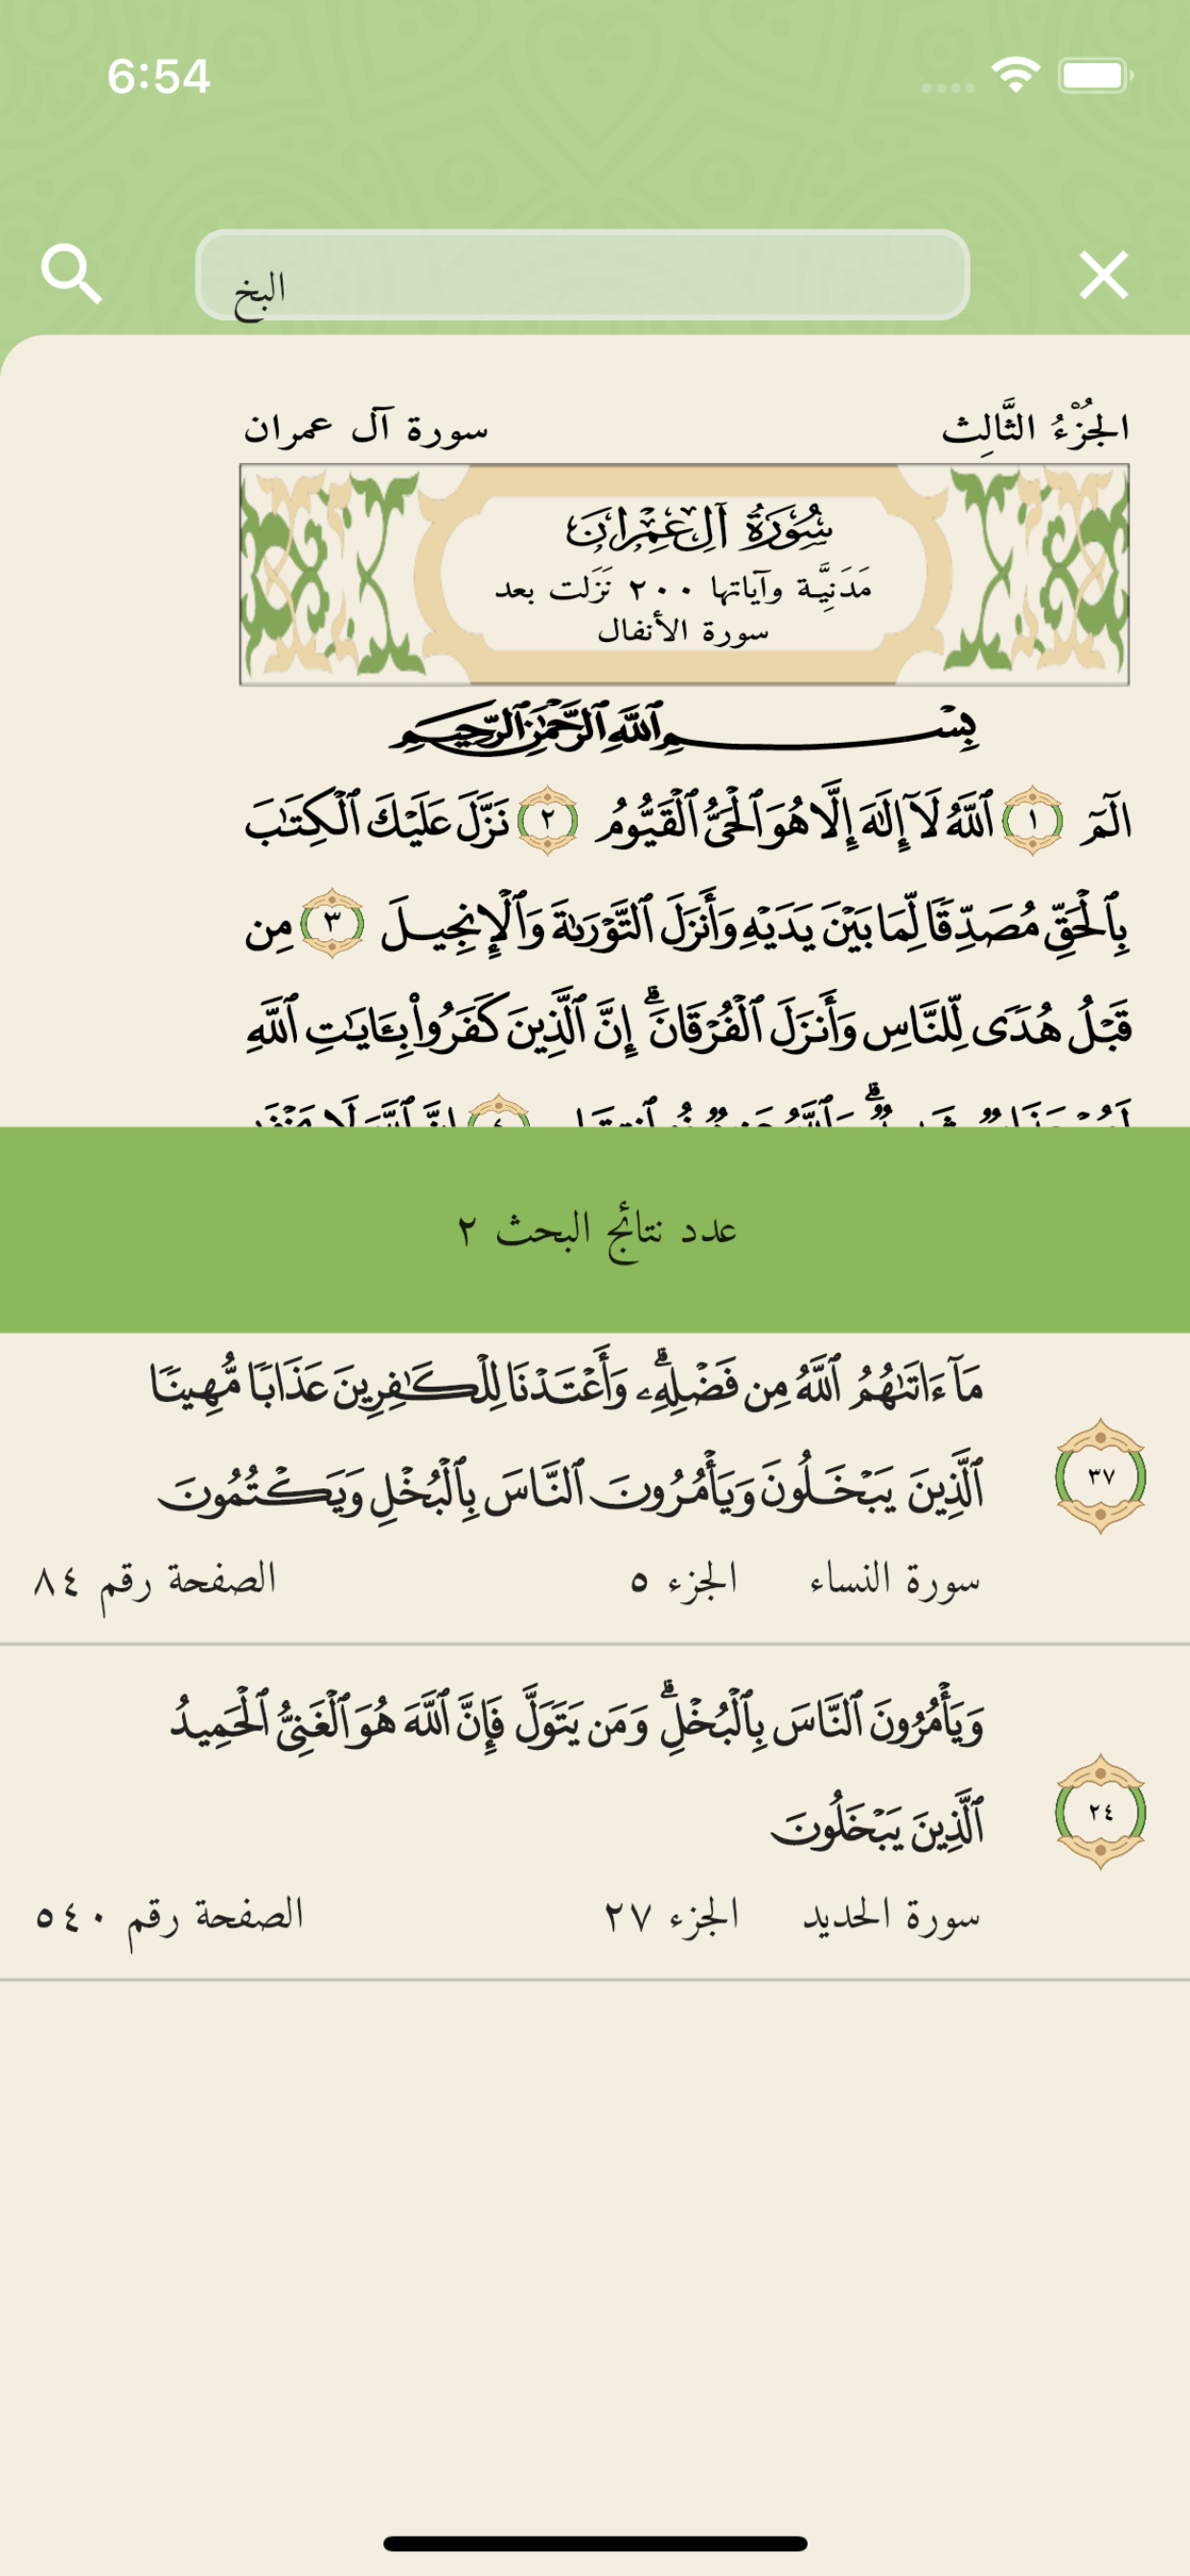 6:54
البخ
الجُزْءُ الثَّالِث سورة آل عمران
سُورَةُ آلِ عِمْرَانَ
مَدَنِيَّة وآياتها ٢٠٠ نَزَلت بعد
سورة الأنفال
بِسْمِ ٱللَّهِ ٱلرَّحْمَٰنِ ٱلرَّحِيمِ
الٓمٓ ١ ٱللَّهُ لَآ إِلَٰهَ إِلَّا هُوَ ٱلْحَىُّ ٱلْقَيُّومُ ٢ نَزَّلَ عَلَيْكَ ٱلْكِتَٰبَ
بِٱلْحَقِّ مُصَدِّقًا لِّمَا بَيْنَ يَدَيْهِ وَأَنزَلَ ٱلتَّوْرَىٰةَ وَٱلْإِنجِيلَ ٣ مِن
قَبْلُ هُدًى لِّلنَّاسِ وَأَنزَلَ ٱلْفُرْقَانَ ۗ إِنَّ ٱلَّذِينَ كَفَرُوا۟ بِـَٔايَٰتِ ٱللَّهِ
عدد نتائج البحث ٢
مَآ ءَاتَىٰهُمُ ٱللَّهُ مِن فَضْلِهِۦ ۗ وَأَعْتَدْنَا لِلْكَٰفِرِينَ عَذَابًا مُّهِينًا
ٱلَّذِينَ يَبْخَلُونَ وَيَأْمُرُونَ ٱلنَّاسَ بِٱلْبُخْلِ وَيَكْتُمُونَ
٣٧
سورة النساء الجزء ٥ الصفحة رقم ٨٤
وَيَأْمُرُونَ ٱلنَّاسَ بِٱلْبُخْلِ ۗ وَمَن يَتَوَلَّ فَإِنَّ ٱللَّهَ هُوَ ٱلْغَنِىُّ ٱلْحَمِيدُ
ٱلَّذِينَ يَبْخَلُونَ
٢٤
سورة الحديد الجزء ٢٧ الصفحة رقم ٥٤٠